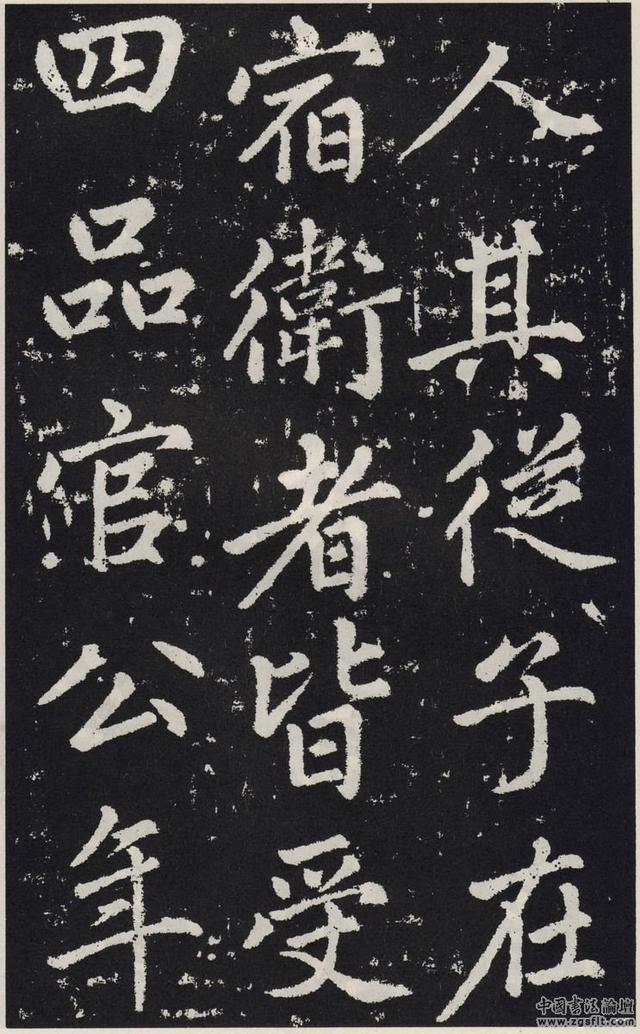 人其從子在
宿衛者皆受
四品官公年
中国书法论坛
www.zgsflt.com